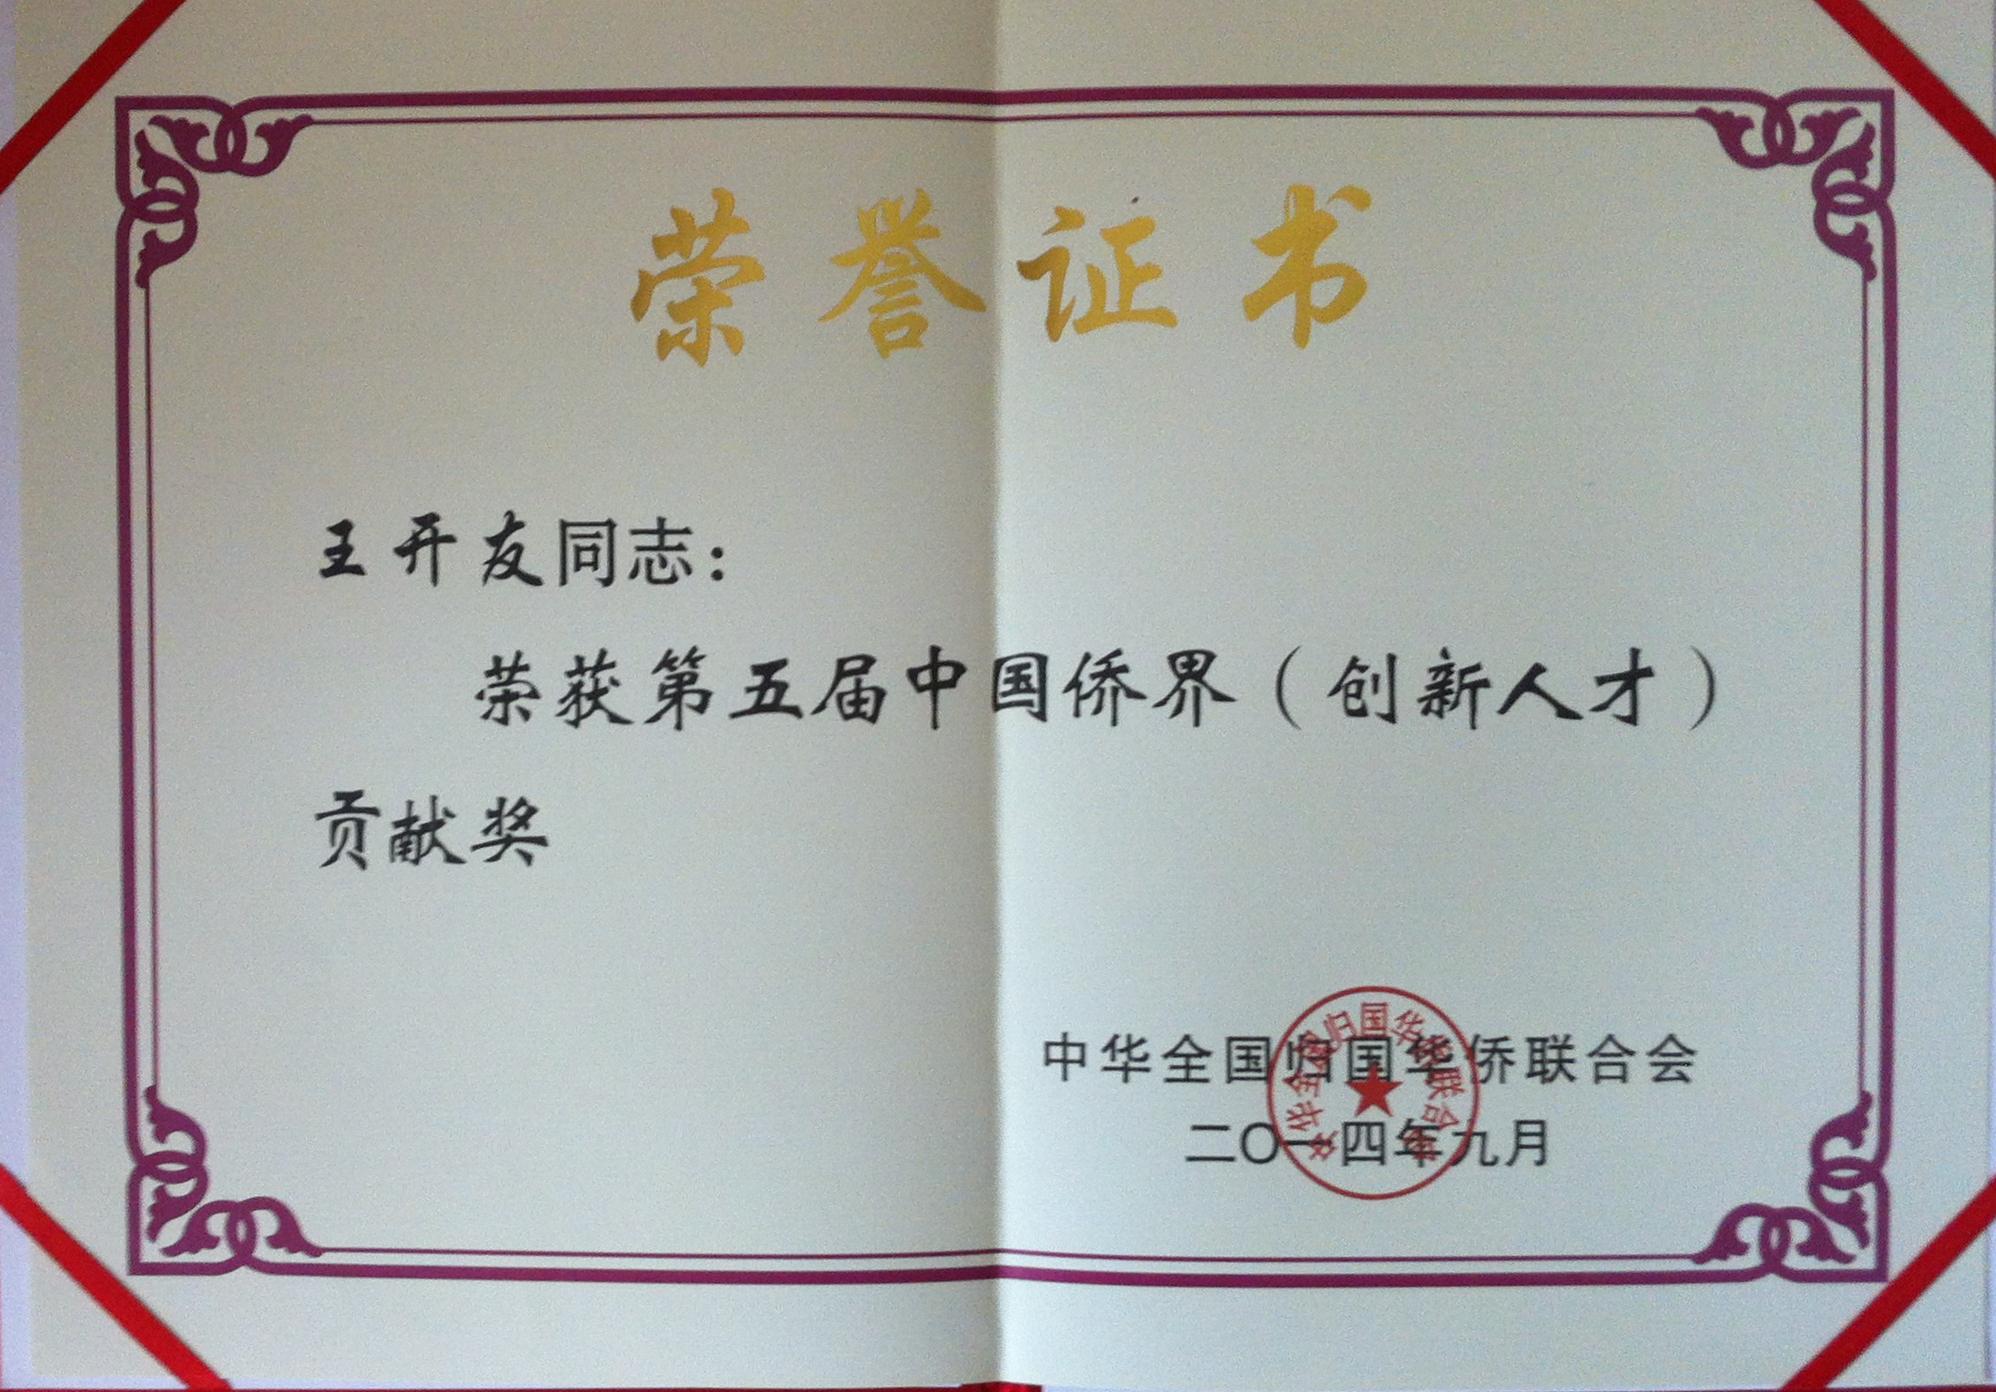 荣誉证书
王开友同志：
荣获第五届中国侨界（创新人才）
贡献奖
中华全国归国华侨联合会
二〇一四年九月
中华全国归国华侨联合会